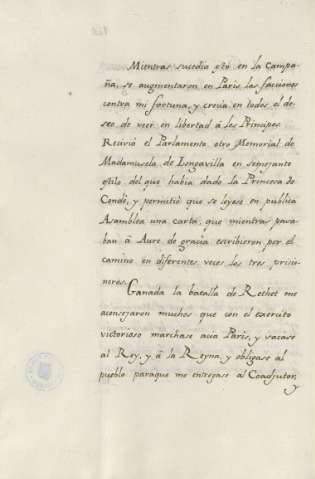 Mientras sucedia esto en la Campa-
ña, se augmentaron en Paris las facciones
contra mi fortuna, y crecia en todos el de-
seo de veer en libertad à los Principes.
Recivió el Parlamento otro Memorial de
Madamusela de Longavilla en semejante
estilo del que havia dado la Princesa de
Condè, y permitiò que se leyese en publica
Asamblea una carta, que mientras pasa-
ban â Avre de gracia escribieron, por el
camino en diferentes veces los tres prisio-
neros. Ganada la batalla de Rethel me
aconsejaron muchos que con el exercito
victorioso marchase acia Paris, y sacase
al Rey, y â la Reyna, y obligase al
pueblo paraque me entregase al Coadjutor,
y